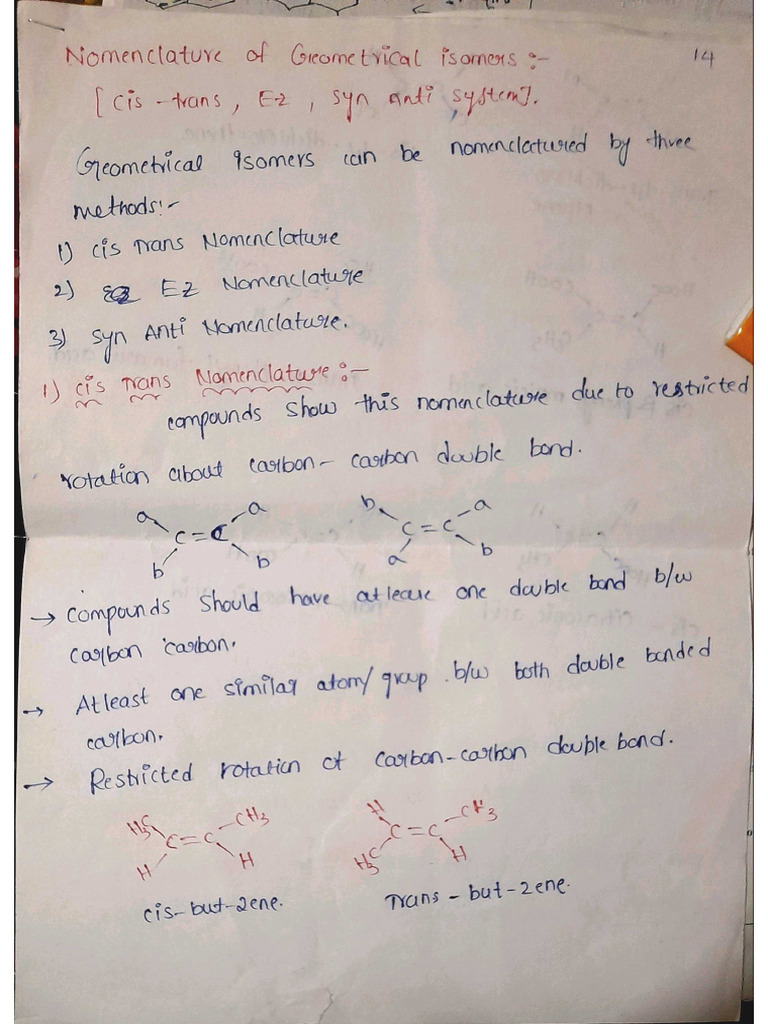 14
Nomenclature of Geometrical isomers :-
[cis - trans, EZ, syn anti system].
Geometrical isomers can be nomenclatured by three
methods:-
1) cis Trans Nomenclature
2) EZ Nomenclature
3) Syn Anti Nomenclature.
1) cis Trans Nomenclature :-
compounds show this nomenclature due to restricted
rotation about carbon - carbon double bond.
a a b a
C=C C=C
b b a b
→ compounds should have atleast one double bond b/w
carbon carbon.
→ Atleast one similar atom/group b/w both double bonded
carbon.
→ Restricted rotation of carbon-carbon double bond.
H3C CH3 H CH3
C=C C=C
H H H3C H
cis-but-2ene. Trans-but-2ene.